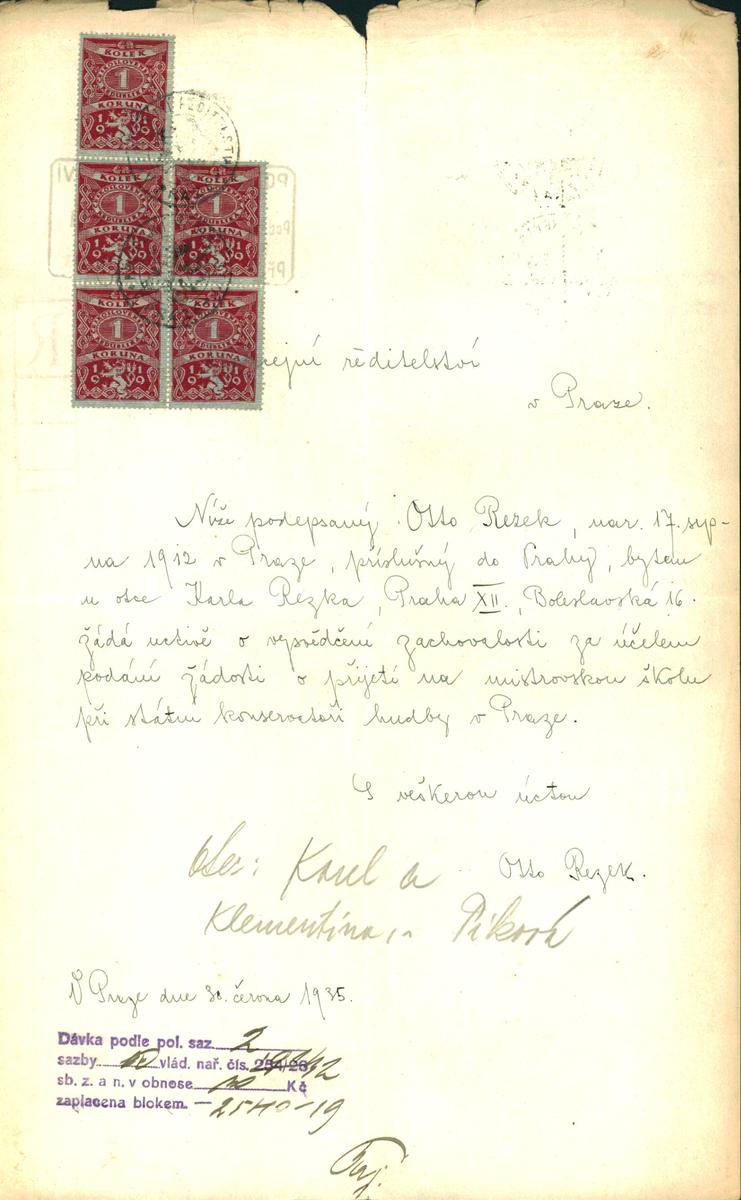 KOLEK
ČESKOSLOVENSKÁ REPUBLIKA
1
KORUNA
1919
KOLEK
1
KORUNA
1919
KOLEK
1
KORUNA
1919
KOLEK
1
KORUNA
1919
KOLEK
1
KORUNA
1919
ejní ředitelství
v Praze.
Níže podepsaný Otto Rezek, nar. 17. srp-
na 1912 v Praze, příslušný do Prahy, bytem
u otce Karla Rezka, Praha XII., Boleslavská 16.
žádá uctivě o vysvědčení zachovalosti za účelem
podání žádosti o přijetí na mistrovskou školu
při státní konservatoři hudby v Praze.
S veškerou úctou
Otto Rezek.
otec: Karel a
Klementina, Piková
V Praze dne 30. června 1935.
Dávka podle pol. saz. 2
sazby vlád. nař. čís. 254/26
sb. z. a n. v obnose 10 Kč
zaplacena blokem